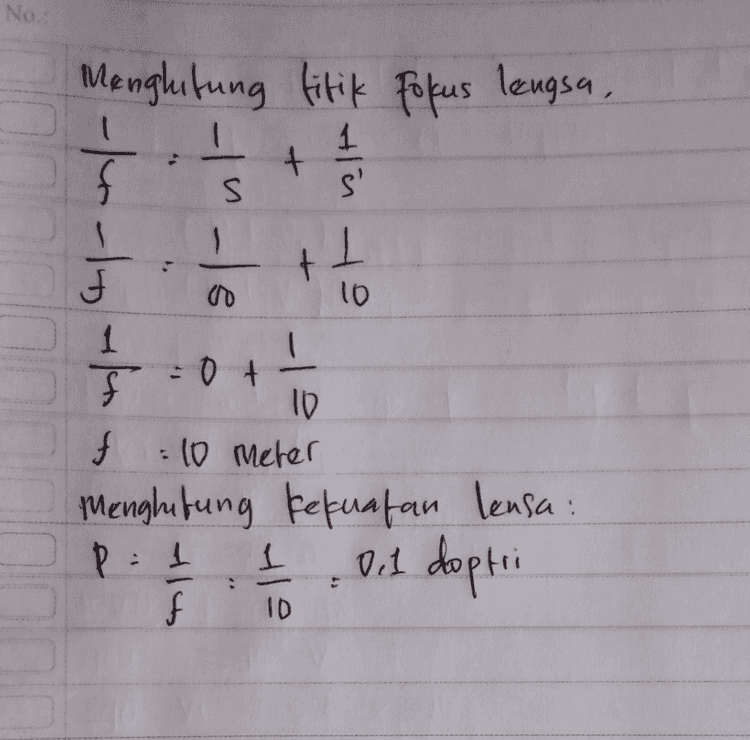 No.:
Menghitung titik Fokus lengsa.
1/f = 1/s + 1/s'
1/f = 1/∞ + 1/10
1/f = 0 + 1/10
f = 10 meter
Menghitung kekuatan lensa :
P = 1/f = 1/10 = 0,1 doptri